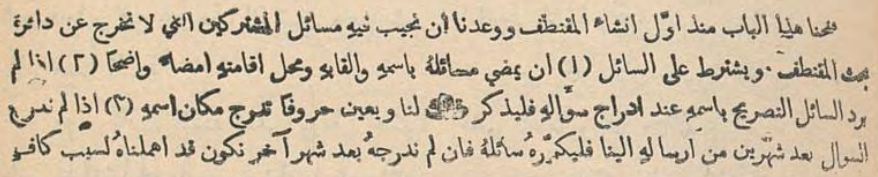 فتحنا هذا الباب منذ اوّل انشاء المقتطف ووعدنا ان نجيب فيهِ مسائل المشتركين التي لا تخرج عن دائرة
بحث المقتطف. ويشترط على السائل (١) ان يمضي مسائلهُ باسمهِ والقابهِ ومحل اقامتهِ امضاءً واضحاً (٢) اذا لم
يرد السائل التصريح باسمهِ عند ادراج سوَّالهِ فليذكر ذلك لنا ويعين حروفاً تدرج مكان اسمهِ (٣) اذا لم ندرج
السوال بعد شهرين من ارسالهِ الينا فليكرّرهُ سائلهُ فان لم ندرجهُ بعد شهر آخر نكون قد اهملناهُ لسبب كافٍ